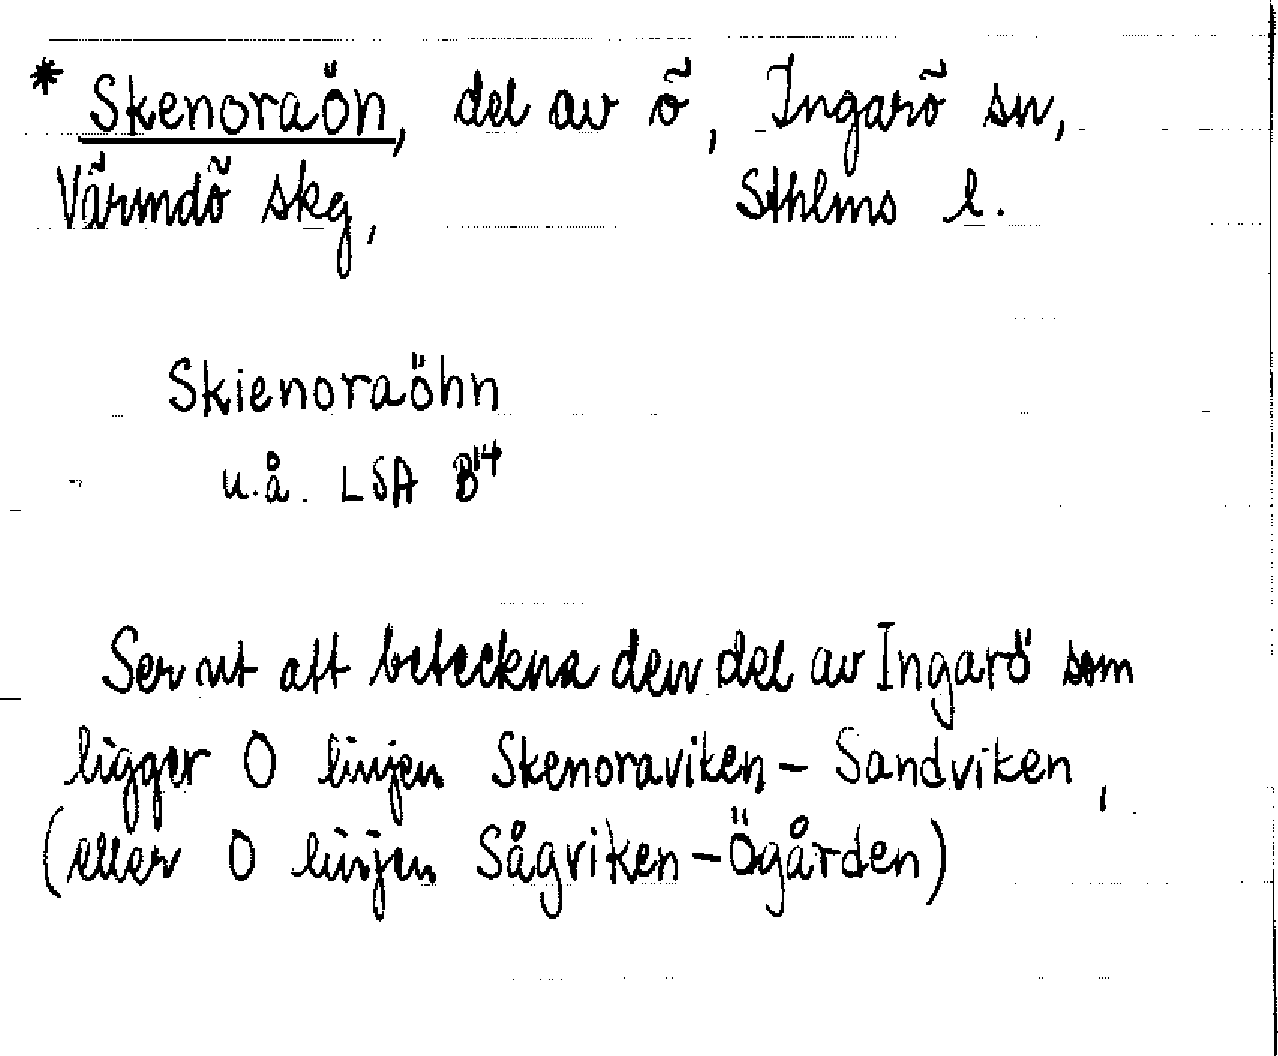 * Skenoraön, del av ö, Ingarö sn,
Värmdö skg, Sthlms l.
Skienoraöhn
u.å. LSA B14
Ser ut att beteckna den del av Ingarö som
ligger O linjen Skenoraviken - Sandviken,
(eller O linjen Sågviken - Ögården)